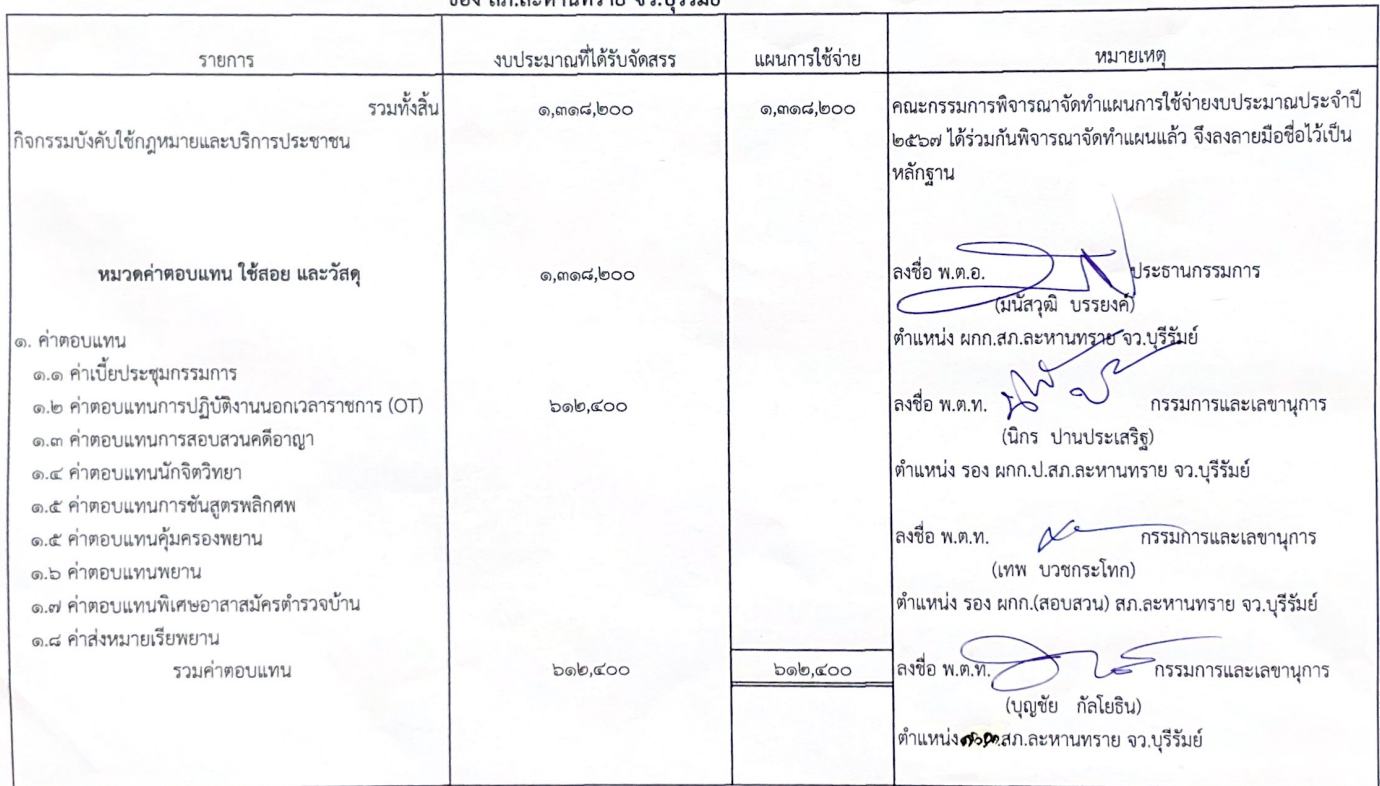 ของ สภ.ละหานทราย จว.บุรีรัมย์
รายการ งบประมาณที่ได้รับจัดสรร แผนการใช้จ่าย หมายเหตุ
รวมทั้งสิ้น ๑,๓๑๘,๒๐๐ ๑,๓๑๘,๒๐๐ คณะกรรมการพิจารณาจัดทำแผนการใช้จ่ายงบประมาณประจำปี
กิจกรรมบังคับใช้กฎหมายและบริการประชาชน ๒๕๖๗ ได้ร่วมกันพิจารณาจัดทำแผนแล้ว จึงลงลายมือชื่อไว้เป็น
หลักฐาน
หมวดค่าตอบแทน ใช้สอย และวัสดุ ๑,๓๑๘,๒๐๐ ลงชื่อ พ.ต.อ. ประธานกรรมการ
(มนัสวุฒิ บรรยงค์)
๑. ค่าตอบแทน ตำแหน่ง ผกก.สภ.ละหานทราย จว.บุรีรัมย์
๑.๑ ค่าเบี้ยประชุมกรรมการ
๑.๒ ค่าตอบแทนการปฏิบัติงานนอกเวลาราชการ (OT) ๖๑๒,๔๐๐ ลงชื่อ พ.ต.ท. กรรมการและเลขานุการ
๑.๓ ค่าตอบแทนการสอบสวนคดีอาญา (นิกร ปานประเสริฐ)
๑.๔ ค่าตอบแทนนักจิตวิทยา ตำแหน่ง รอง ผกก.ป.สภ.ละหานทราย จว.บุรีรัมย์
๑.๕ ค่าตอบแทนการชันสูตรพลิกศพ
๑.๕ ค่าตอบแทนคุ้มครองพยาน ลงชื่อ พ.ต.ท. กรรมการและเลขานุการ
๑.๖ ค่าตอบแทนพยาน (เทพ บวชกระโทก)
๑.๗ ค่าตอบแทนพิเศษอาสาสมัครตำรวจบ้าน ตำแหน่ง รอง ผกก.(สอบสวน) สภ.ละหานทราย จว.บุรีรัมย์
๑.๘ ค่าส่งหมายเรียพยาน
รวมค่าตอบแทน ๖๑๒,๔๐๐ ๖๑๒,๔๐๐ ลงชื่อ พ.ต.ท. กรรมการและเลขานุการ
(บุญชัย กัลโยธิน)
ตำแหน่ง สภ.ละหานทราย จว.บุรีรัมย์